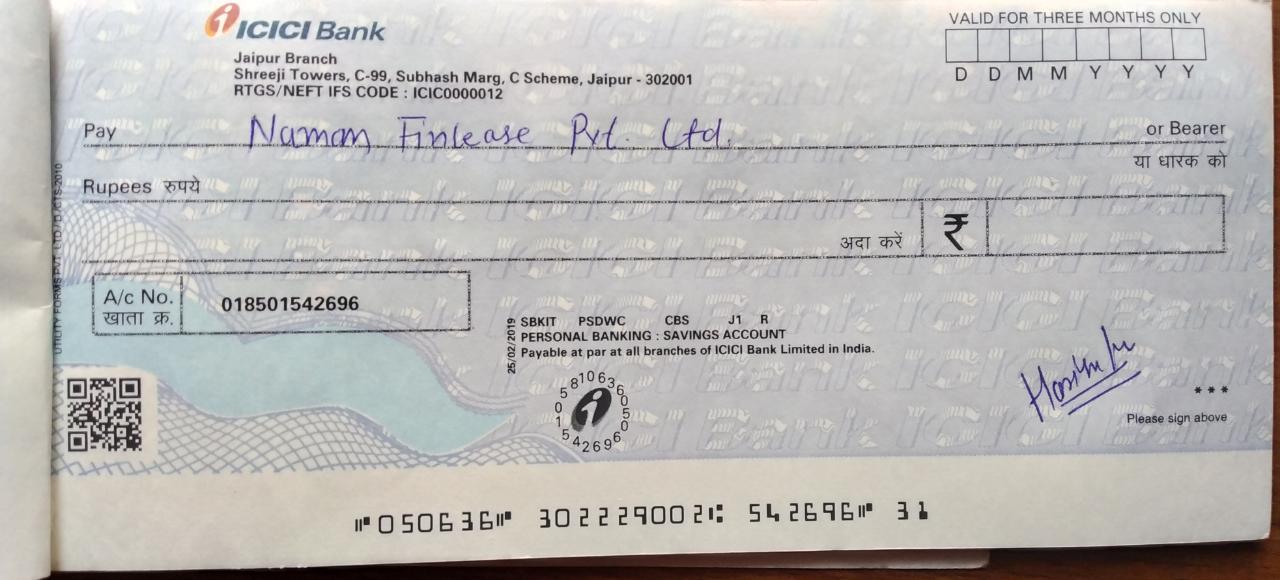 ICICI Bank
Jaipur Branch
Shreeji Towers, C-99, Subhash Marg, C Scheme, Jaipur - 302001
RTGS/NEFT IFS CODE : ICIC0000012
VALID FOR THREE MONTHS ONLY
D D M M Y Y Y Y
Pay Naman Finlease Pvt. Ltd. or Bearer
या धारक को
Rupees रुपये
अदा करें ₹
A/c No. 018501542696
खाता क्र.
SBKIT PSDWC CBS J1 R
PERSONAL BANKING : SAVINGS ACCOUNT
Payable at par at all branches of ICICI Bank Limited in India.
25/02/2019
UTILITY FORMS PVT. LTD / D /CTS-2010
***
Please sign above
050636 302229002 542696 31